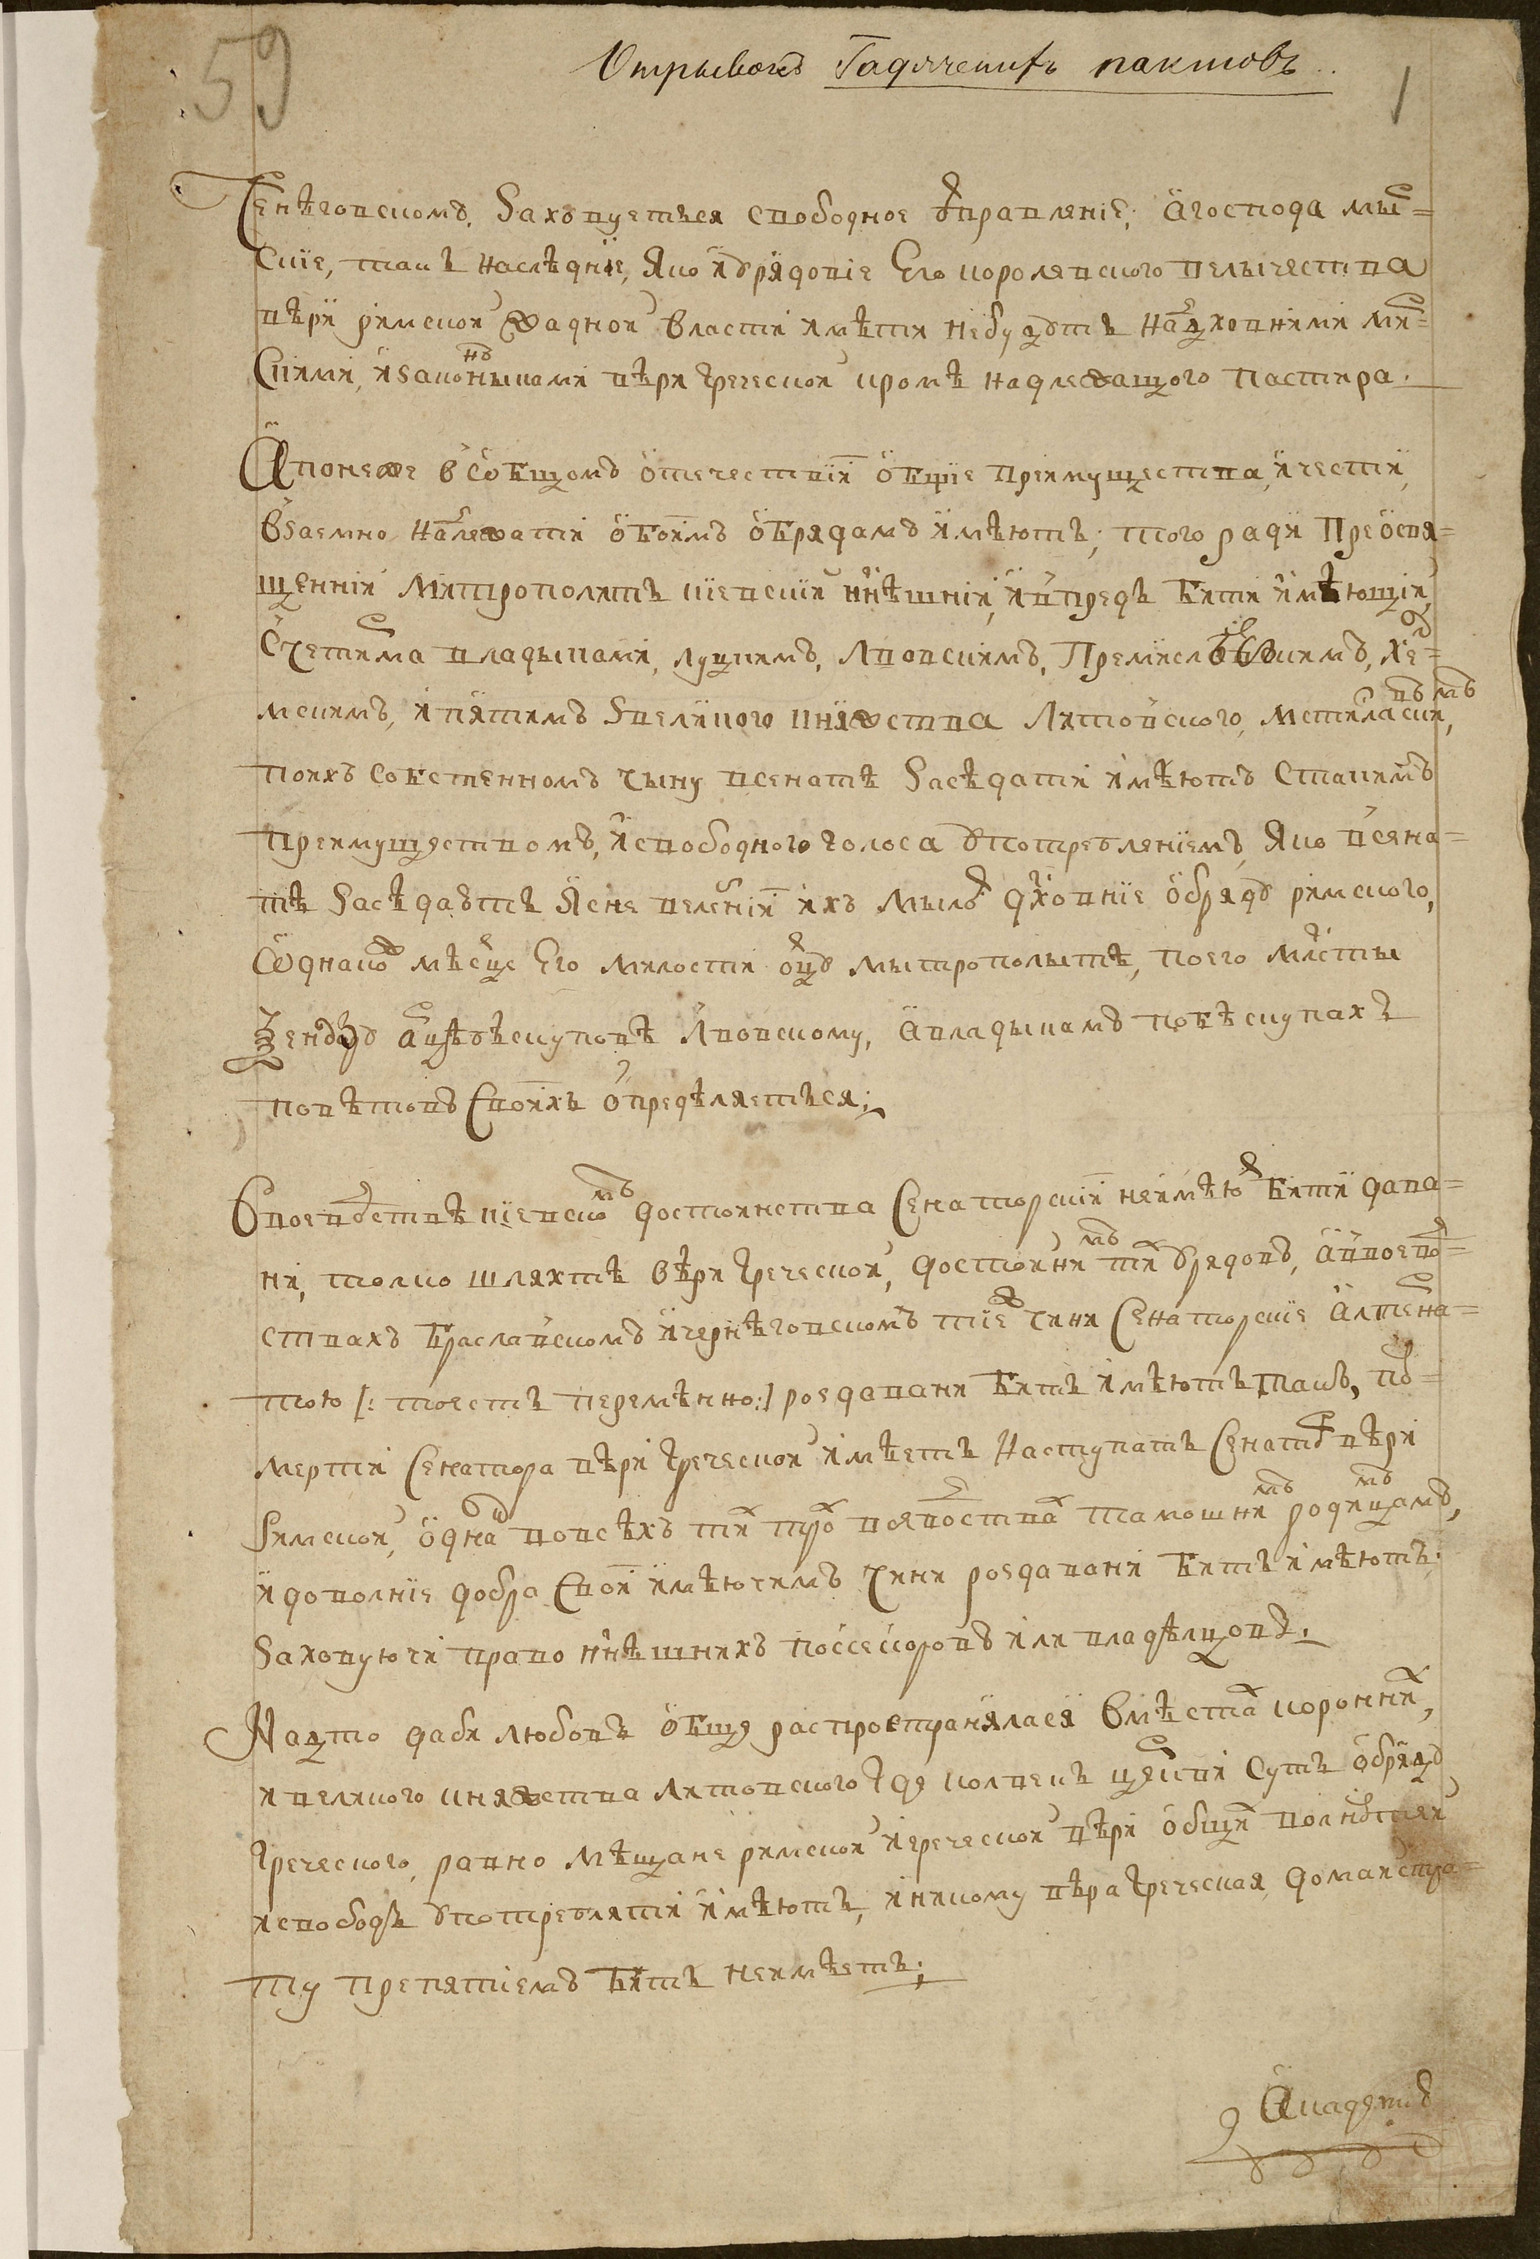 59
Отрывокъ Гадяческихъ пактовъ.
1
генѣговскомъ, заховуется свободное управление; а господа мыр=
скіе, такъ наслѣдніе, яко и урядовіе Его королевского величества
вѣри римской жадной власти имѣти небудутъ надъ духовними мир=
скими, и законныками вѣри греческой кромѣ надлежащого пастира.
А понеже в собщомъ отечествіи общіе преимущества, и чести,
взаемно належати обоимъ обрядамъ имѣютъ; того ради преосвя=
щенній митрополитъ кіевскій нинѣшній, и впредъ бити имѣющій,
с четирма владыками, луцкимъ, лвовскимъ, премисловскимъ, хе=
мскимъ, и пятимъ з великого княжства литовского, мстиславскимъ,
по ихъ собственномъ чыну в сенатѣ засѣдати имѣютъ с такимъ
преимуществомъ, и свободного голоса употребленіемъ, яко в сена=
тѣ засѣдаютъ ясне велебніи ихъ мылость духовніе обряду римского,
однакожъ мѣсце Его милости отцу мытрополытѣ, по его милсты
ксендзу арцыбѣскуповѣ лвовскому, а владыкамъ по бѣскупахъ
повѣтовъ своихъ опредѣляется;
в воеводствѣ кіевскомъ достоинства сенаторскіи не имѣютъ бити дава=
ни, толко шляхтѣ вѣри греческой, достойнимъ тихъ урядовъ, а в воевод=
ствахъ браславскомъ и чернѣговскомъ тіежъ чини сенаторскіе алтерна=
тою [: то естъ перемѣнно :] роздавани битъ имѣютъ, такъ, по
мерти сенатора вѣри греческой имѣетъ наступатъ сенаторъ вѣри
римской, однакъ во всѣхъ тихъ трохъ воеводствахъ тамошнимъ родимцамъ,
и доволніе добра свои имѣючимъ чини роздавани битъ имѣютъ.
заховуючи право нинѣшнихъ поссессоровъ или владѣлцовъ.
Надто даби любовъ общо распространялася в мѣстахъ коронныхъ,
и великого княжства литовского где колвекъ церкви сутъ обряду
греческого, равно мѣщане римской и греческой вѣри общихъ волностей
и свободъ употребляти имѣютъ, и никому вѣра греческая до маистра=
ту препятіемъ битъ не имѣетъ;
Академѣ